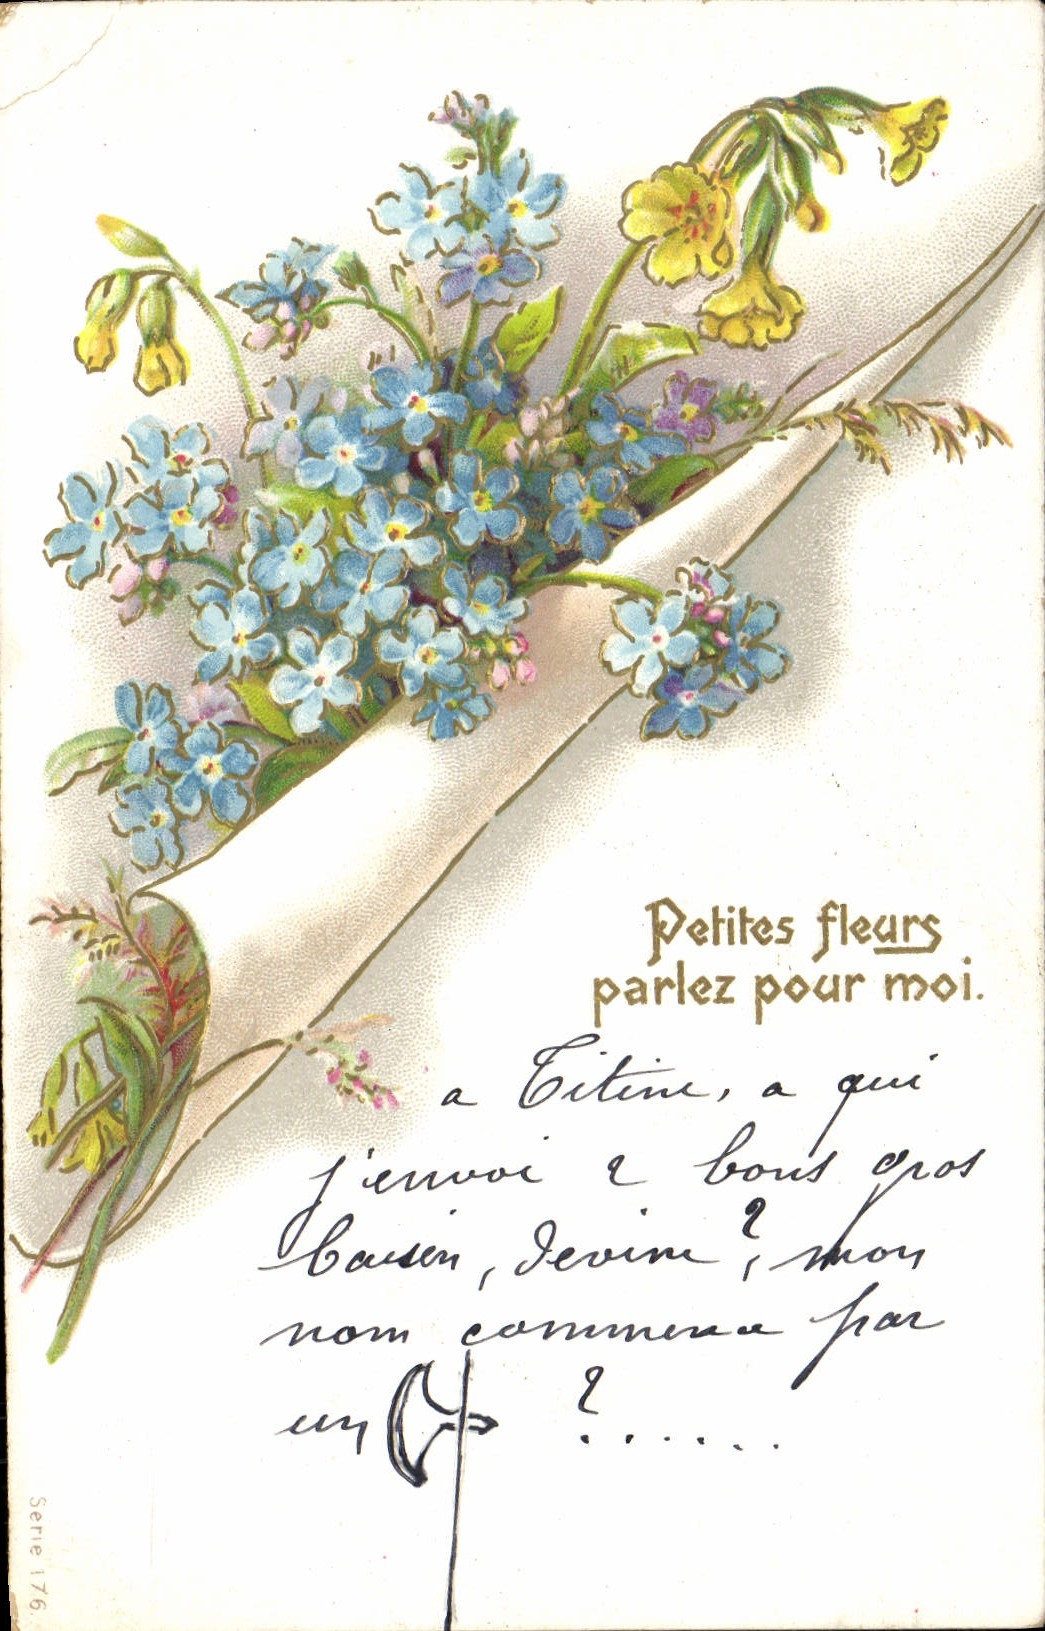 Petites fleurs
parlez pour moi.
a Titine, a qui
j'envoi 2 bons gros
baisers, devine ?, mon
nom commence par
un ?......
Serie 176.